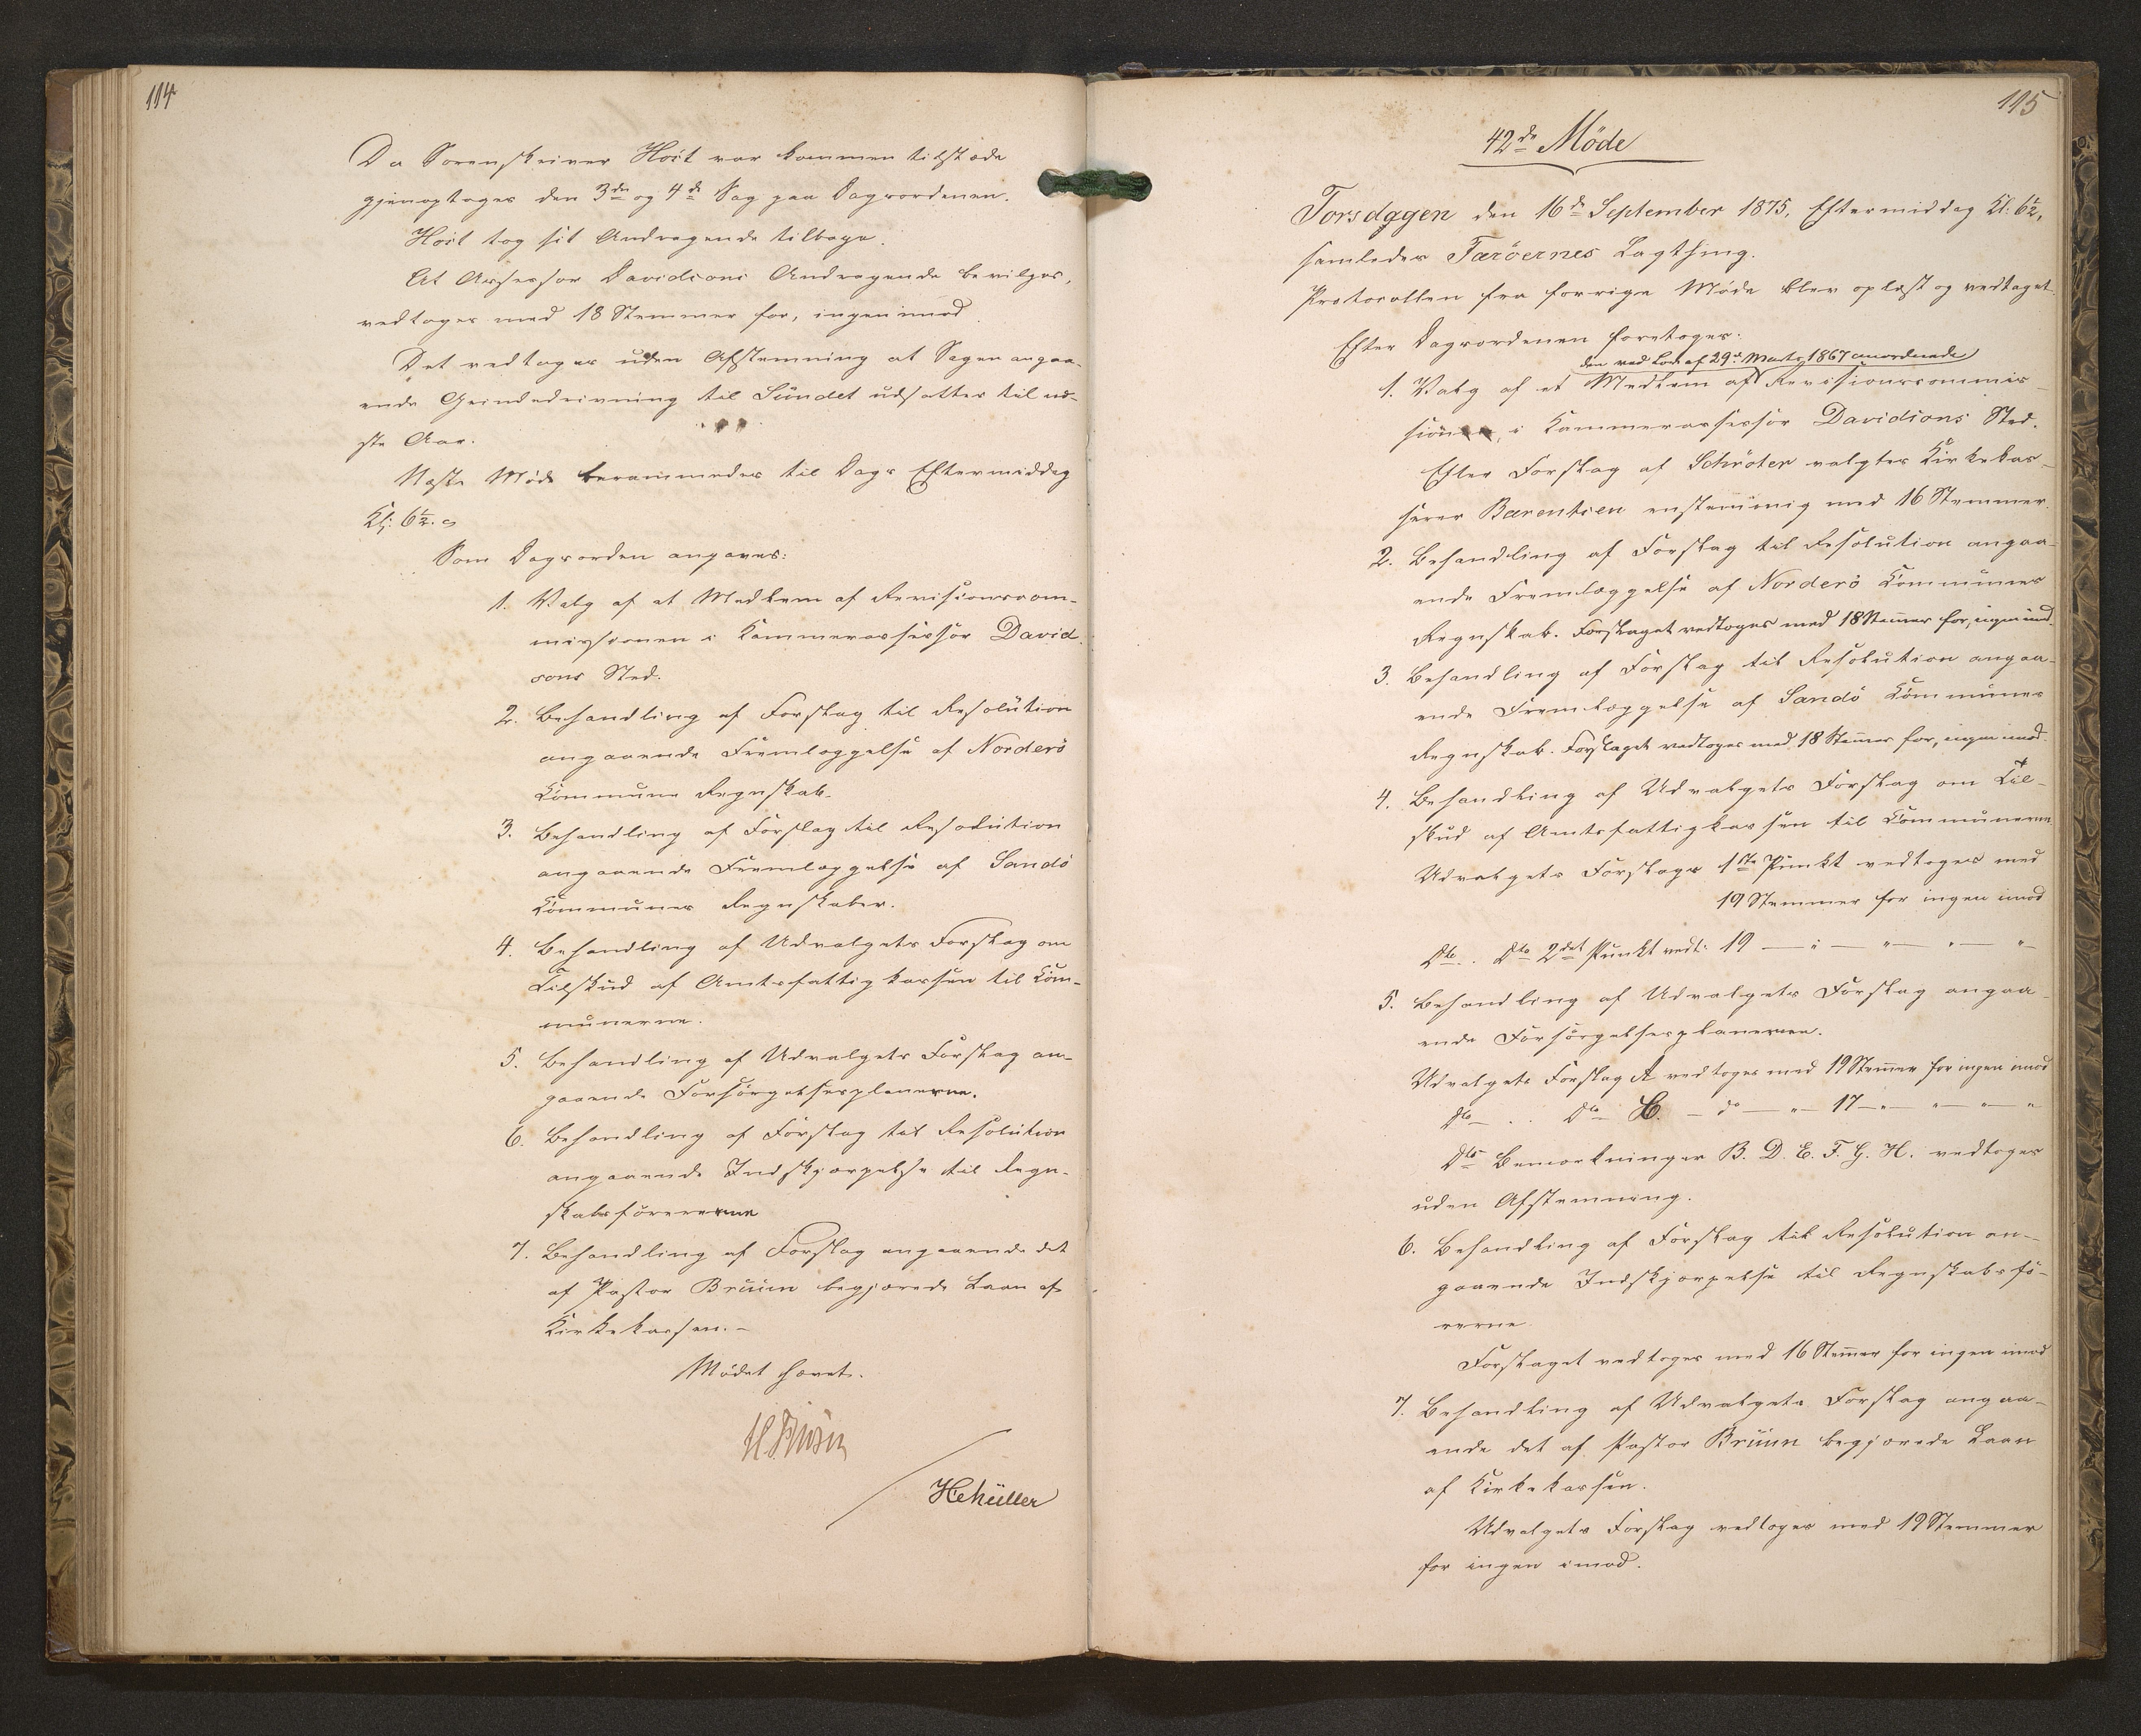 114
Da Sorenskriver Høst var kommen tilstæde
gjenoptoges den 3die og 4de Sag paa Dagsordenen.
Høst tog sit Andragende tilbage.
At Assessor Davidsons Andragende bevilges,
vedtoges med 18 Stemmer for, ingen imod
Det vedtoges uden Afstemning at Sagen angaa-
ende Grindedrivning til Sundet udsættes til næ-
ste Aar.
Næste Møde berammedes til Dags Eftermiddag
Kl: 6½.
Som Dagsorden angaves:
1. Valg af et Medlem af Revisionscom-
missionen i Kammerassessor David-
sons Sted.
2. Behandling af Forslag til Resolution
angaaende Fremlæggelse af Norderø
Kommune Regnskab.
3. Behandling af Forslag til Resolution
angaaende Fremlæggelse af Sandø
Kommunes Regnskaber.
4. Behandling af Udvalgets Forslag om
Tilskud af Amtsfattigkassen til Kom-
munerne.
5. Behandling af Udvalgets Forslag an-
gaaende Forsørgelsesplanerne.
6. Behandling af Forslag til Resolution
angaaende Indskjærpelse til Regn-
skabsførererne
7. Behandling af Forslag angaaende det
af Pastor Bruun begjærede Laan af
Kirkekassen.-
Mødet hævet.
HMüller
115
42de Møde
Torsdagen den 16de September 1875, Eftermiddag Kl: 6½,
samledes Færøernes Lagthing.
Protocollen fra forrige Møde blev oplæst og vedtaget.
Efter Dagsordenen foretoges:
den ved Lov af 29de Marts 1867 anordnede
1. Valg af et Medlem af Revisionscommis-
sionen, i Kammerassessor Davidsons Sted.
Efter Forslag af Schrøter valgtes Kirkekas-
serer Bærentsen enstemmig med 16 Stemmer.
2. Behandling af Forslag til Resolution angaa-
ende Fremlæggelse af Norderø Kommunes
Regnskab. Forslaget vedtoges med 18 Stemmer for, ingen imod.
3. Behandling af Forslag til Resolution angaa-
ende Fremlæggelse af Sandø Kommunes
Regnskab. Forslaget vedtoges med 18 Stemmer for, ingen imod.
4. Behandling af Udvalgets Forslag om Til-
skud af Amtsfattigkassen til Kommunerne.
Udvalgets Forslags 1ste Punkt vedtoges med
19 Stemmer for ingen imod
Dto. Dto 2det Punkt vedt: 19 — " — " — " — "
5. Behandling af Udvalgets Forslag angaa-
ende Forsørgelsesplanerne.
Udvalgets Forslag A vedtoges med 19 Stemmer for ingen imod
Dto . . Dto C. — do — " — 17 — " — " — " — "
Dto Bemærkninger B. D. E. F. G. H. vedtoges
uden Afstemning.
6. Behandling af Forslag til Resolution an-
gaaende Indskjærpelse til Regnskabsfø-
rerne
Forslaget vedtoges med 16 Stemmer for ingen imod
7. Behandling af Udvalgets Forslag angaa-
ende det af Pastor Bruun begjærede Laan
af Kirkekassen.
Udvalgets Forslag vedtoges med 19 Stemmer
for ingen imod.